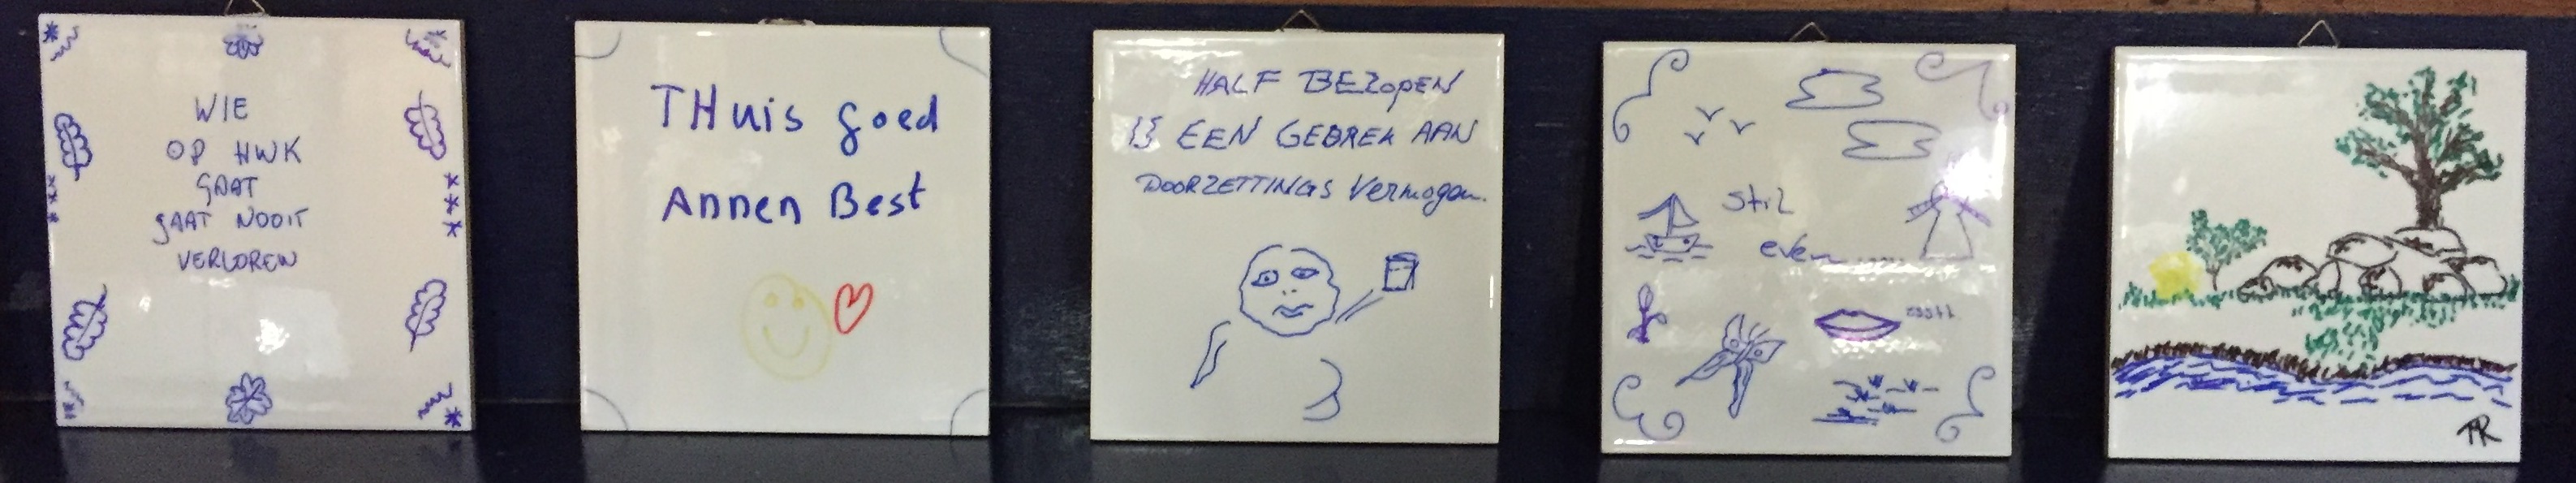 WIE
OP HWK
GAAT
GAAT NOOIT
VERLOREN
THuis goed
Annen Best
HALF BEZOPEN
IS EEN GEBREK AAN
DOORZETTINGS Vermogen.
Stil
even......
TR